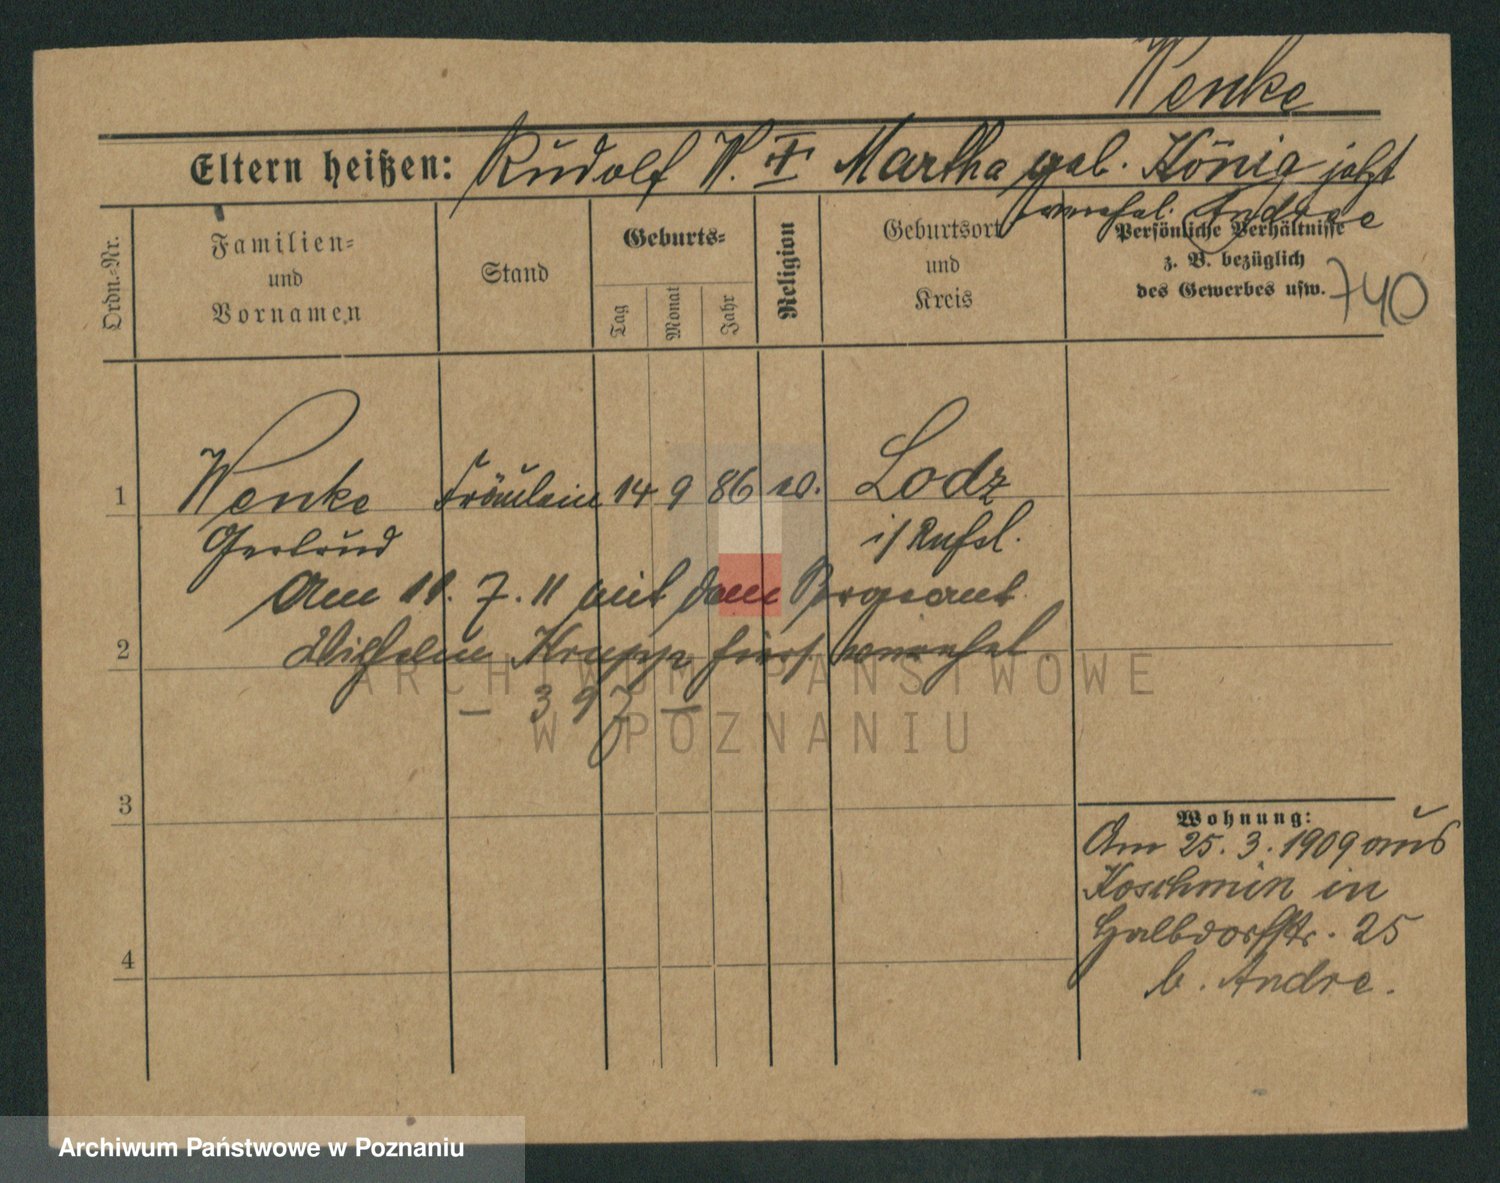 Wenke
Eltern heißen: Rudolf W. II Martha geb. König jetzt
verehel. Andree
Ordn.-Nr.
Familien- und Vornamen
Stand
Geburts-
Tag
Monat
Jahr
Religion
Geburtsort und Kreis
Persönliche Verhältnisse
z. B. bezüglich
des Gewerbes usw. 740
1 Wenke Fräulein 14 9 86 ev. Lodz
Gertrud i/Rußl.
Am 11. 7. 11 mit dem Sergeant
2 Wilhelm Krupp hier verehel.
— 397 —
3
4
Wohnung:
Am 25. 3. 1909 aus
Koschmin in
Halbdorfstr. 25
b. Andre.
ARCHIWUM PAŃSTWOWE
W POZNANIU
Archiwum Państwowe w Poznaniu